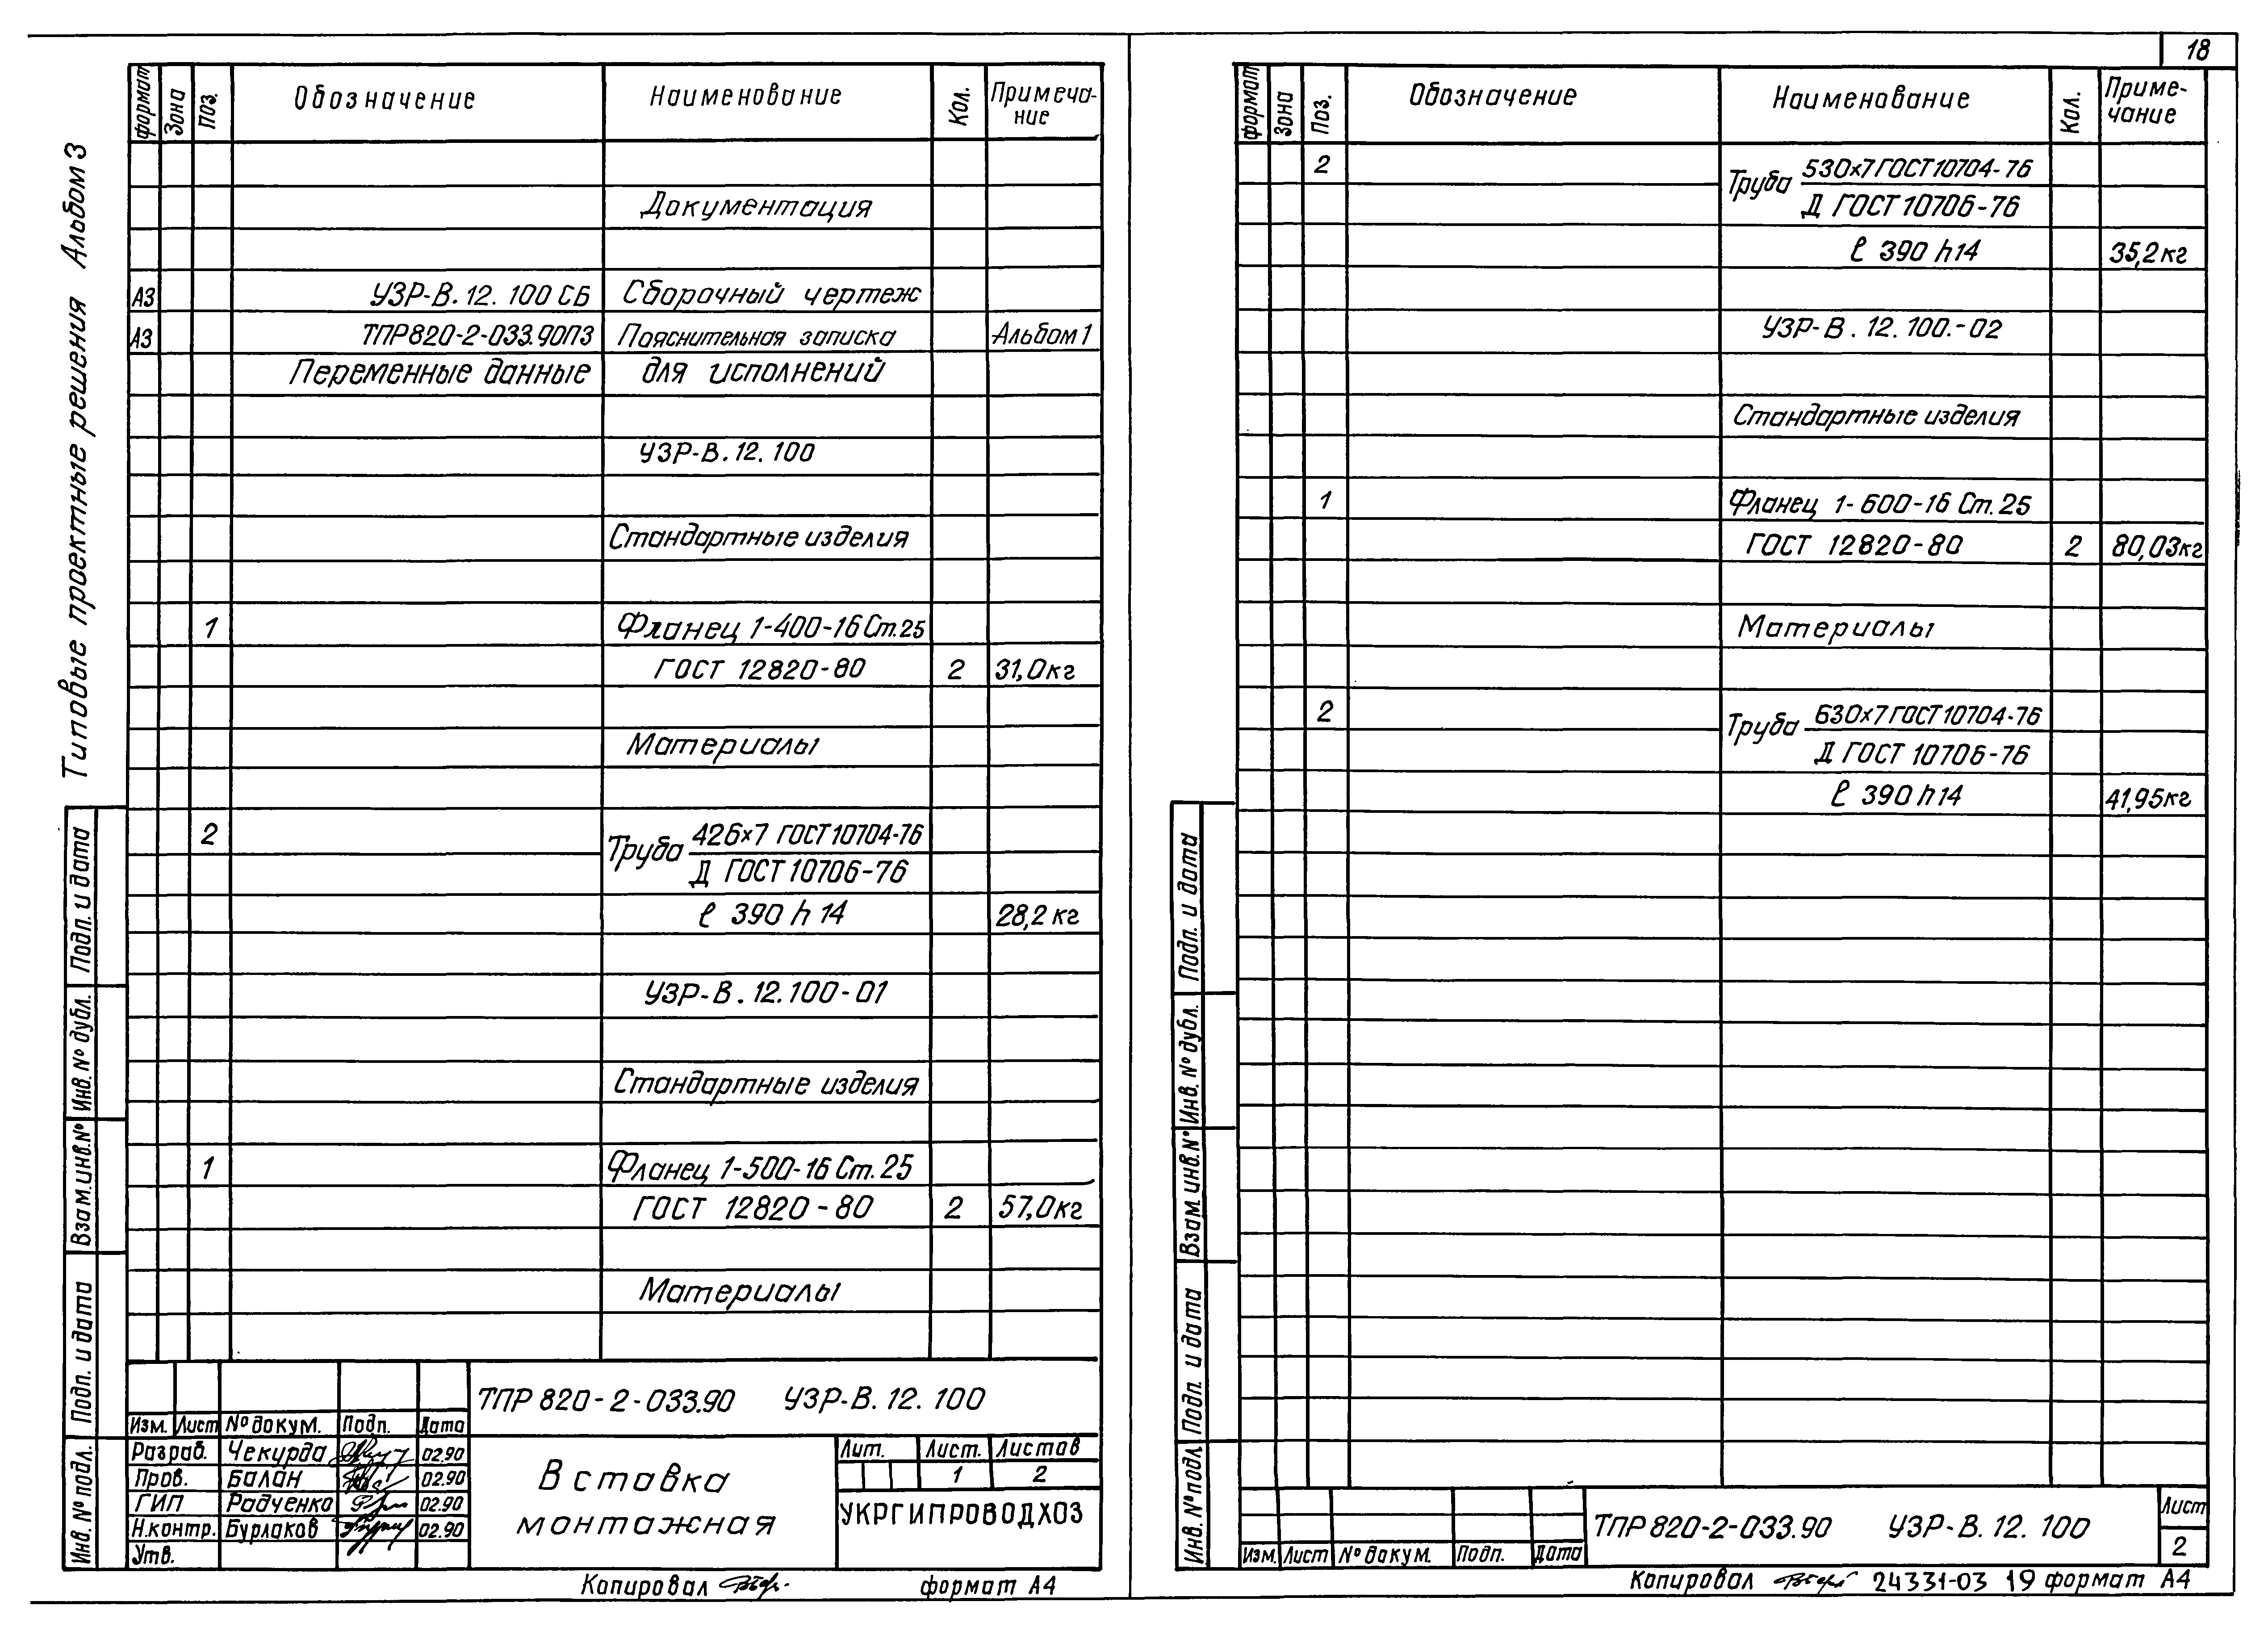 18
Типовые проектные решения Альбом 3
формат Зона Поз. Обозначение Наименование Кол. Примеча-
ние
Документация
А3 УЗР-В.12.100 СБ Сборочный чертеж
А3 ТПР820-2-033.90ПЗ Пояснительная записка Альбом 1
Переменные данные для исполнений
УЗР-В.12.100
Стандартные изделия
1 Фланец 1-400-16 Ст.25
ГОСТ 12820-80 2 31,0кг
Материалы
2 Труба 426×7 ГОСТ10704-76
Д ГОСТ 10706-76
ℓ 390 h14 28,2 кг
УЗР-В.12.100-01
Стандартные изделия
1 Фланец 1-500-16 Ст.25
ГОСТ 12820-80 2 57,0кг
Материалы
Подп. и дата
Инв. № дубл.
Взам.инв.№
Подп. и дата
Инв. № подл.
ТПР 820-2-033.90 УЗР-В.12.100
Изм. Лист № докум. Подп. Дата
Разраб. Чекурда 02.90
Пров. Балан 02.90
ГИП Радченко 02.90
Н.контр. Бурлаков 02.90
Утв.
Вставка
монтажная
Лит. Лист. Листов
1 2
УКРГИПРОВОДХОЗ
Копировал формат А4
формат Зона Поз. Обозначение Наименование Кол. Приме-
чание
2 Труба 530×7 ГОСТ10704-76
Д ГОСТ 10706-76
ℓ 390 h14 35,2кг
УЗР-В.12.100.-02
Стандартные изделия
1 Фланец 1-600-16 Ст.25
ГОСТ 12820-80 2 80,03кг
Материалы
2 Труба 630×7 ГОСТ10704-76
Д ГОСТ 10706-76
ℓ 390 h14 41,95кг
Подп. и дата
Инв. № дубл.
Взам инв.№
Подп. и дата
Инв. № подл
ТПР 820-2-033.90 УЗР-В.12.100
Лист
2
Изм. Лист № докум. Подп. Дата
Копировал 24331-03 19 формат А4